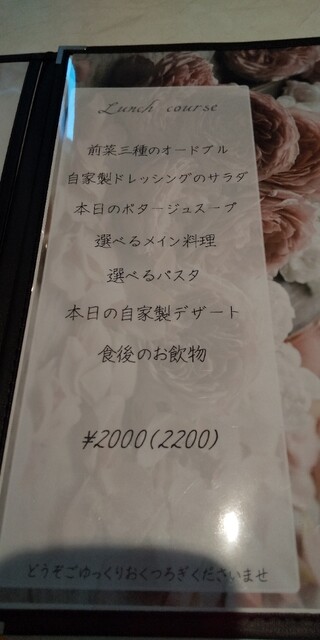 Lunch course
前菜三種のオードブル
自家製ドレッシングのサラダ
本日のポタージュスープ
選べるメイン料理
選べるパスタ
本日の自家製デザート
食後のお飲物
¥2000(2200)
どうぞごゆっくりおくつろぎくださいませ